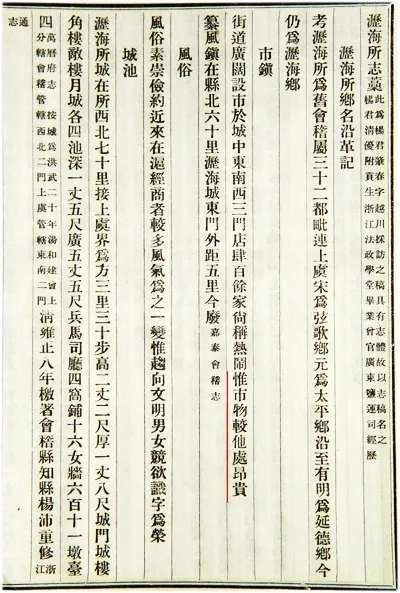 瀝海所志藁
此爲楊君肇春字越川採訪之稿具有志體故以志稿名之
楊君清優附貢生浙江法政學堂畢業曾官廣東鹽運司經歷
瀝海所鄉名沿革記
考瀝海所爲舊會稽屬三十二都毗連上虞宋爲弦歌鄉元爲太平鄉沿至有明爲延德鄉今
仍爲瀝海鄉
市鎮
街道廣闊設市於城中東南西三門店肆百餘家尙稱熱鬧惟市物較他處昂貴
纂風鎮在縣北六十里瀝海城東門外距五里今廢 嘉泰會稽志
風俗
風俗素崇儉約近來在滬經商者較多風氣爲之一變惟趨向文明男女競欲識字爲榮
城池
瀝海所城在所西北七十里接上虞界爲方三里三十步高二丈二尺厚一丈八尺城門城樓
角樓敵樓月城各四池深一丈五尺廣五丈五尺兵馬司廳四窩鋪十六女牆六百十一墩臺
四
萬曆府志 按城爲洪武二十年湯和建曾上
分轄會稽管轄西北二門上虞管轄東南二門
淸雍正八年檄署會稽縣知縣楊沛重修 浙江
通志